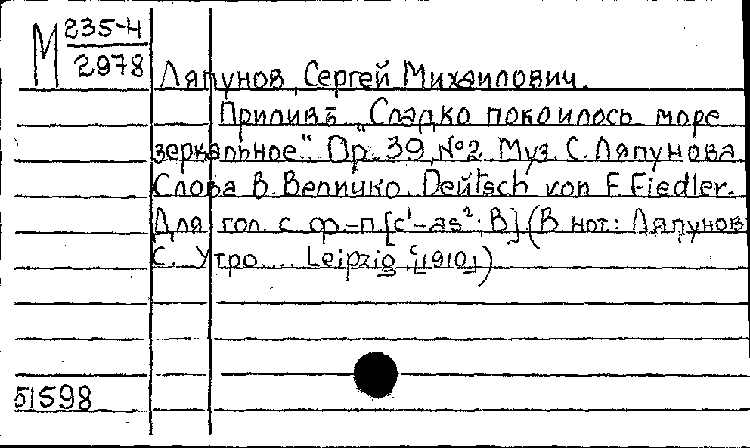 М 235-4
2978
Ляпунов, Сергей Михайлович.
Приливъ. „Сладко покоилось море
зеркальное". Ор. 39, №2. Муз. С. Ляпунова.
Слова В. Величко. Deutsch von F. Fiedler.
Для гол. с ф.-п. [c¹-as²; B] (В нот: Ляпунов
С. Утро.... Leipzig, [1910])
51598